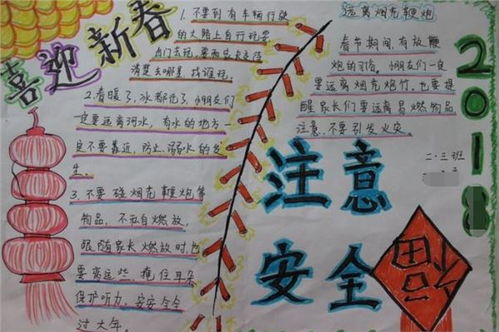 喜迎新春
1.不要到有车辆行驶
的大路上自行玩耍
出门去玩,要向
清楚去哪里,找谁玩。
2.春暖了,冰都化了,朋友们
一定要远离河水,有水的地方一
定不要靠近,防止溺水的发
生。
3.不要碰烟花鞭炮等
物品,不私自燃放,
跟随家长燃放时,也
要离远些,捂住耳朵
保护听力。安安全全
过大年。
远离烟花鞭炮
春节期间,有放鞭
炮的习俗。朋友们一定
要远离烟花炮竹,也要提
醒家长们要远离易燃物品
注意,不要引发火灾。
二·三班
2018
注意
安全
福